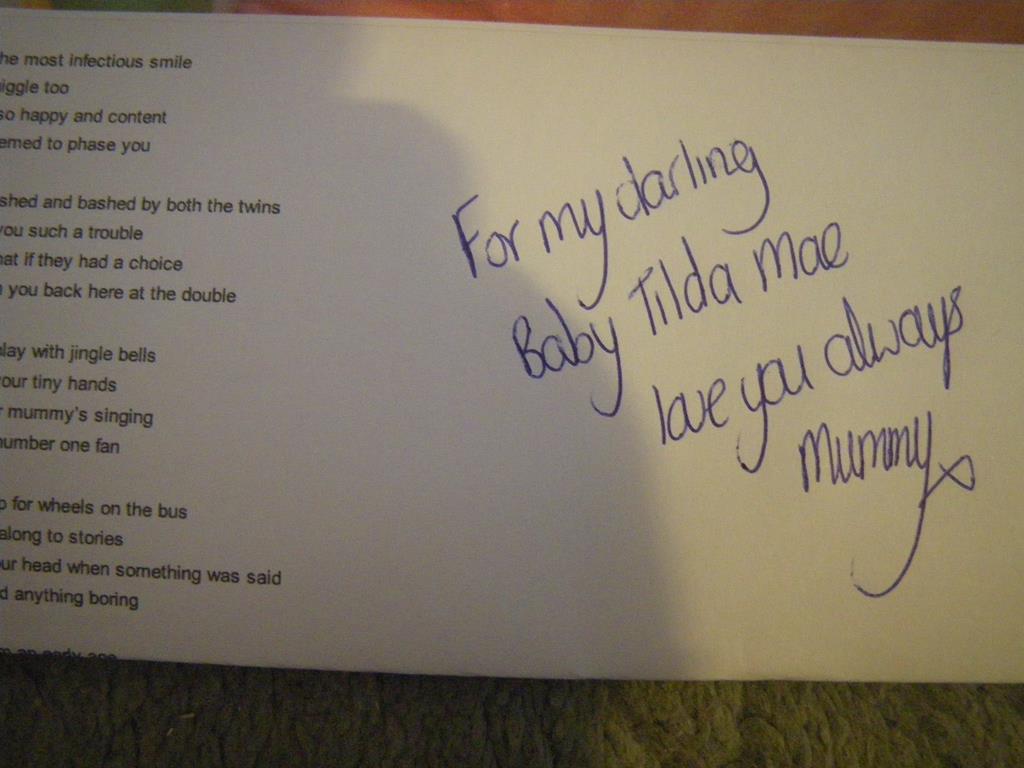 he most infectious smile
iggle too
so happy and content
emed to phase you
shed and bashed by both the twins
you such a trouble
at if they had a choice
you back here at the double
lay with jingle bells
our tiny hands
mummy's singing
number one fan
for wheels on the bus
along to stories
ur head when something was said
d anything boring
For my darling
Baby Tilda Mae
love you always
Mummy x